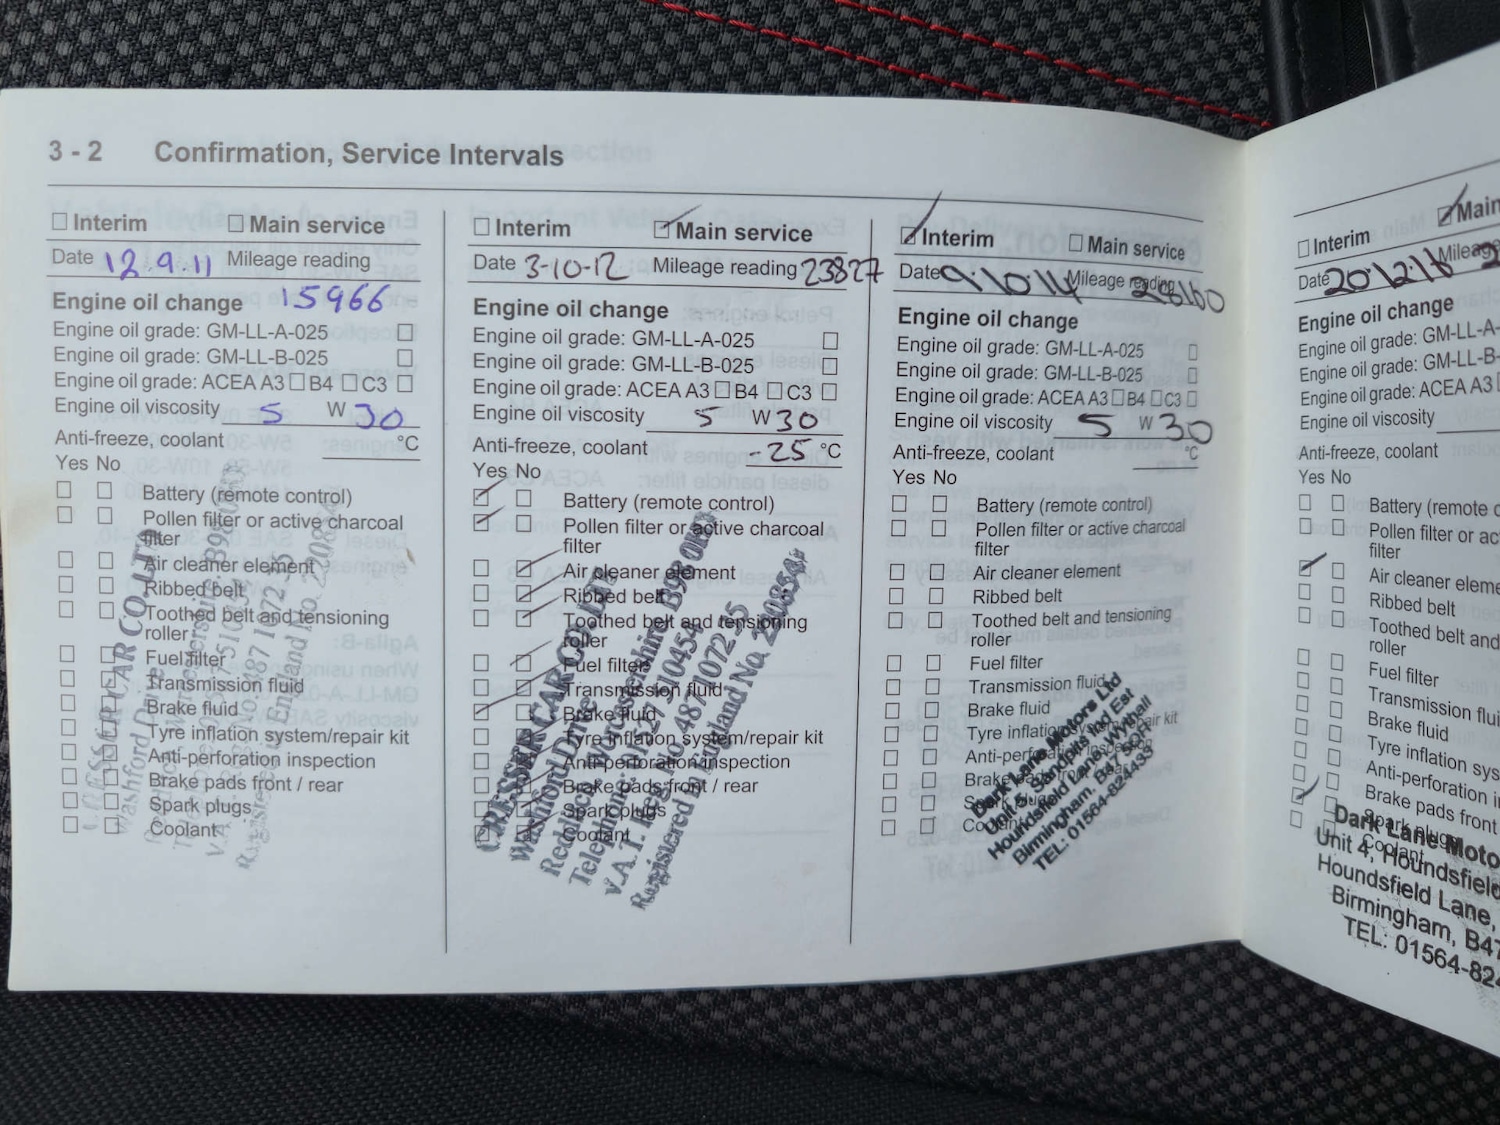 3 - 2 Confirmation, Service Intervals
Interim Main service
Date 12.9.11 Mileage reading
Engine oil change 15966
Engine oil grade: GM-LL-A-025
Engine oil grade: GM-LL-B-025
Engine oil grade: ACEA A3 B4 C3
Engine oil viscosity 5 W 30
Anti-freeze, coolant °C
Yes No
Battery (remote control)
Pollen filter or active charcoal
filter
Air cleaner element
Ribbed belt
Toothed belt and tensioning
roller
Fuel filter
Transmission fluid
Brake fluid
Tyre inflation system/repair kit
Anti-perforation inspection
Brake pads front / rear
Spark plugs
Coolant
CRESSER CAR CO. LTD
Washford Drive
Interim Main service
Date 3-10-12 Mileage reading 23827
Engine oil change
Engine oil grade: GM-LL-A-025
Engine oil grade: GM-LL-B-025
Engine oil grade: ACEA A3 B4 C3
Engine oil viscosity 5 W 30
Anti-freeze, coolant -25 °C
Yes No
Battery (remote control)
Pollen filter or active charcoal
filter
Air cleaner element
Ribbed belt
Toothed belt and tensioning
roller
Fuel filter
Transmission fluid
Brake fluid
Tyre inflation system/repair kit
Anti-perforation inspection
Brake pads front / rear
Spark plugs
Coolant
CRESSER CAR CO. LTD
Washford Drive
Redditch, Worcestershire, B98
Telephone: 01527 510454
V.A.T. Reg. No. 487 1072 55
Registered in England No.
Interim Main service
Date 9.10.14 Mileage reading
Engine oil change
Engine oil grade: GM-LL-A-025
Engine oil grade: GM-LL-B-025
Engine oil grade: ACEA A3 B4 C3
Engine oil viscosity 5 W 30
Anti-freeze, coolant °C
Yes No
Battery (remote control)
Pollen filter or active charcoal
filter
Air cleaner element
Ribbed belt
Toothed belt and tensioning
roller
Fuel filter
Transmission fluid
Brake fluid
Tyre inflation system/repair kit
Anti-perforation inspection
Brake pads front / rear
Spark plugs
Coolant
Dark Lane Motors Ltd
Houndsfield Lane, Wythall
Birmingham. B47
TEL: 01564-824433
Interim Main
Date 20.12.16 Mileage
Engine oil change
Engine oil grade: GM-LL-A-
Engine oil grade: GM-LL-B-
Engine oil grade: ACEA A3
Engine oil viscosity
Anti-freeze, coolant
Yes No
Battery (remote c
Pollen filter or ac
filter
Air cleaner eleme
Ribbed belt
Toothed belt and
roller
Fuel filter
Transmission flui
Brake fluid
Tyre inflation sys
Anti-perforation i
Brake pads front
Spark plugs
Coolant
Dark Lane Moto
Unit 4, Houndsfield
Houndsfield Lane,
Birmingham, B47
TEL: 01564-824